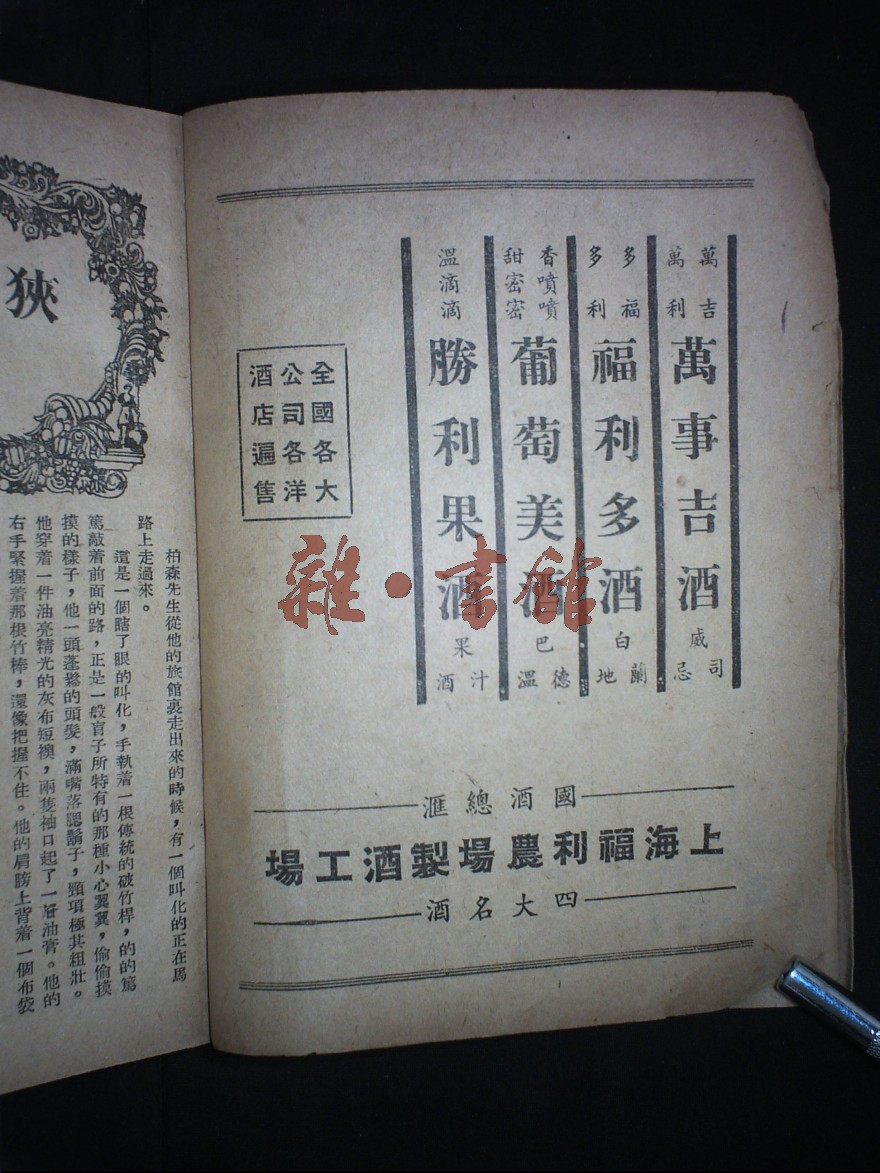 萬吉
萬利
萬事吉酒
威司忌
多福
多利
福利多酒
白蘭地
香噴噴
甜密密
葡萄美酒
巴德溫
溫滴滴
勝利果酒
果汁酒
全國各大
公司各洋
酒店遍售
國酒總滙
上海福利農場製酒工場
四大名酒
雜·書館
狹
柏森先生從他的旅館裏走出來的時候，有一個叫化的正在馬
路上走過來。
這是一個瞎了眼的叫化，手執着一根傳統的破竹桿，的的篤
篤敲着前面的路，正是一般盲子所特有的那種小心翼翼，偷偷摸
摸的樣子，他一頭蓬鬆的頭髮，滿嘴落腮鬍子，頸項極其粗壯。
他穿着一件油亮精光的灰布短襖，兩隻袖口起了一層油膏。他的
右手緊握着那根竹棒，還像把握不住。他的肩膀上背着一個布袋